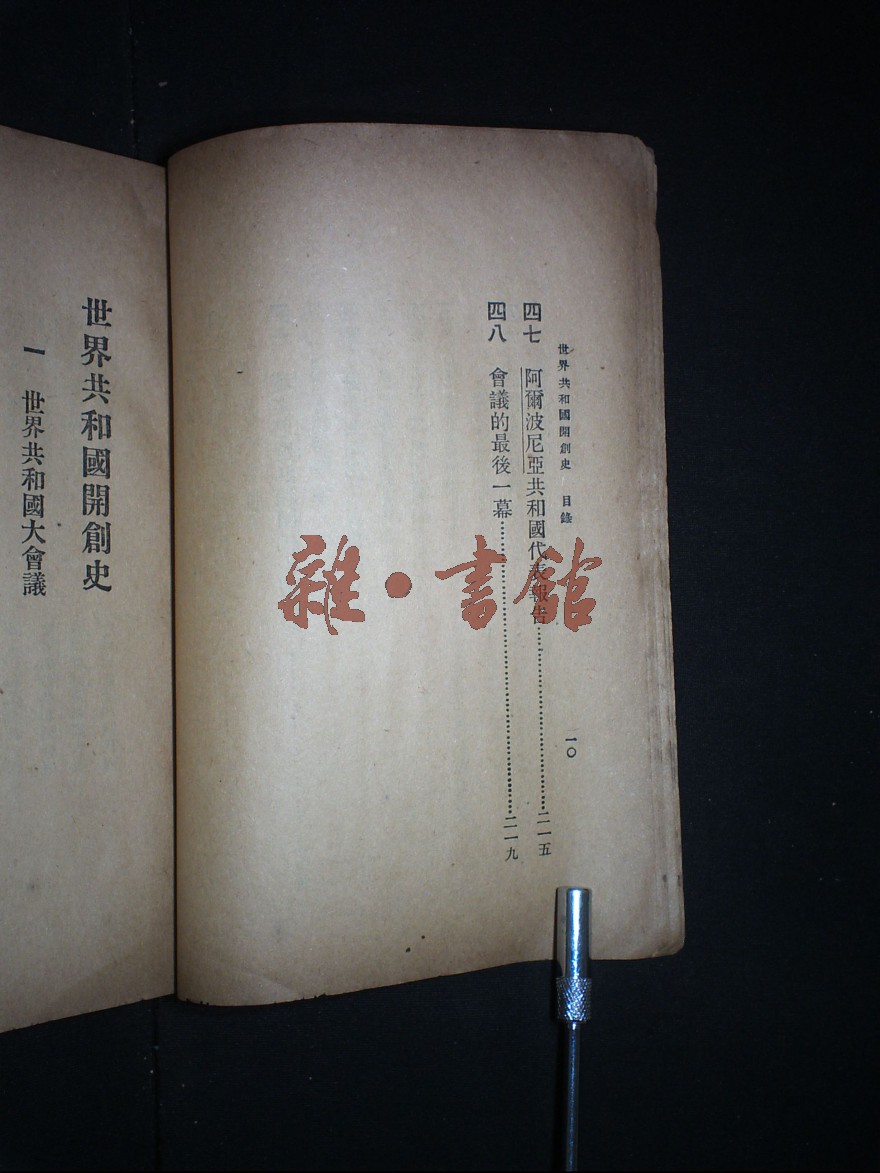 世界共和國開創史 目錄
一〇
四七 阿爾波尼亞共和國代表報告…………二一五
四八 會議的最後一幕…………二一九
世界共和國開創史
一 世界共和國大會議
雜·書館